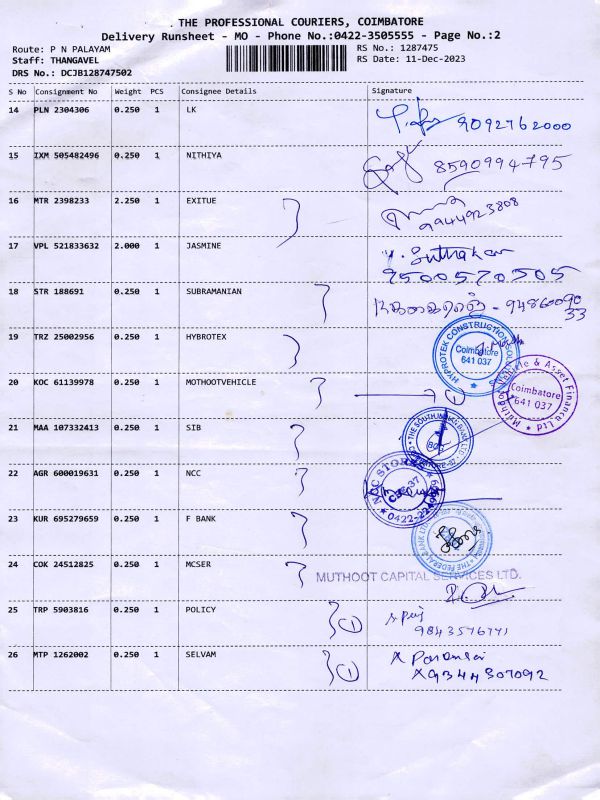 THE PROFESSIONAL COURIERS, COIMBATORE
Delivery Runsheet - MO - Phone No.:0422-3505555 - Page No.:2
Route: P N PALAYAM
RS No.: 1287475
Staff: THANGAVEL
RS Date: 11-Dec-2023
DRS No.: DCJB128747502
S No Consignment No Weight PCS Consignee Details Signature
14 PLN 2304306 0.250 1 LK
9092762000
15 IXM 505482496 0.250 1 NITHIYA
8590994795
16 MTR 2398233 2.250 1 EXITUE
9944923808
17 VPL 521833632 2.000 1 JASMINE
9500570505
18 STR 188691 0.250 1 SUBRAMANIAN
9486009033
19 TRZ 25002956 0.250 1 HYBROTEX
HYPROTEK CONSTRUCTION
Coimbatore
641 037
20 KOC 61139978 0.250 1 MOTHOOTVEHICLE 1
Muthoot Vehicle & Asset Finance Ltd
Coimbatore
641 037
21 MAA 107332413 0.250 1 SIB
THE SOUTH INDIAN BANK LTD
22 AGR 600019631 0.250 1 NCC
NCC STORES
23 KUR 695279659 0.250 1 F BANK
THE FEDERAL BANK LTD
24 COK 24512825 0.250 1 MCSER
MUTHOOT CAPITAL SERVICES LTD.
25 TRP 5903816 0.250 1 POLICY 1
9843576771
26 MTP 1262002 0.250 1 SELVAM 1
9344307092